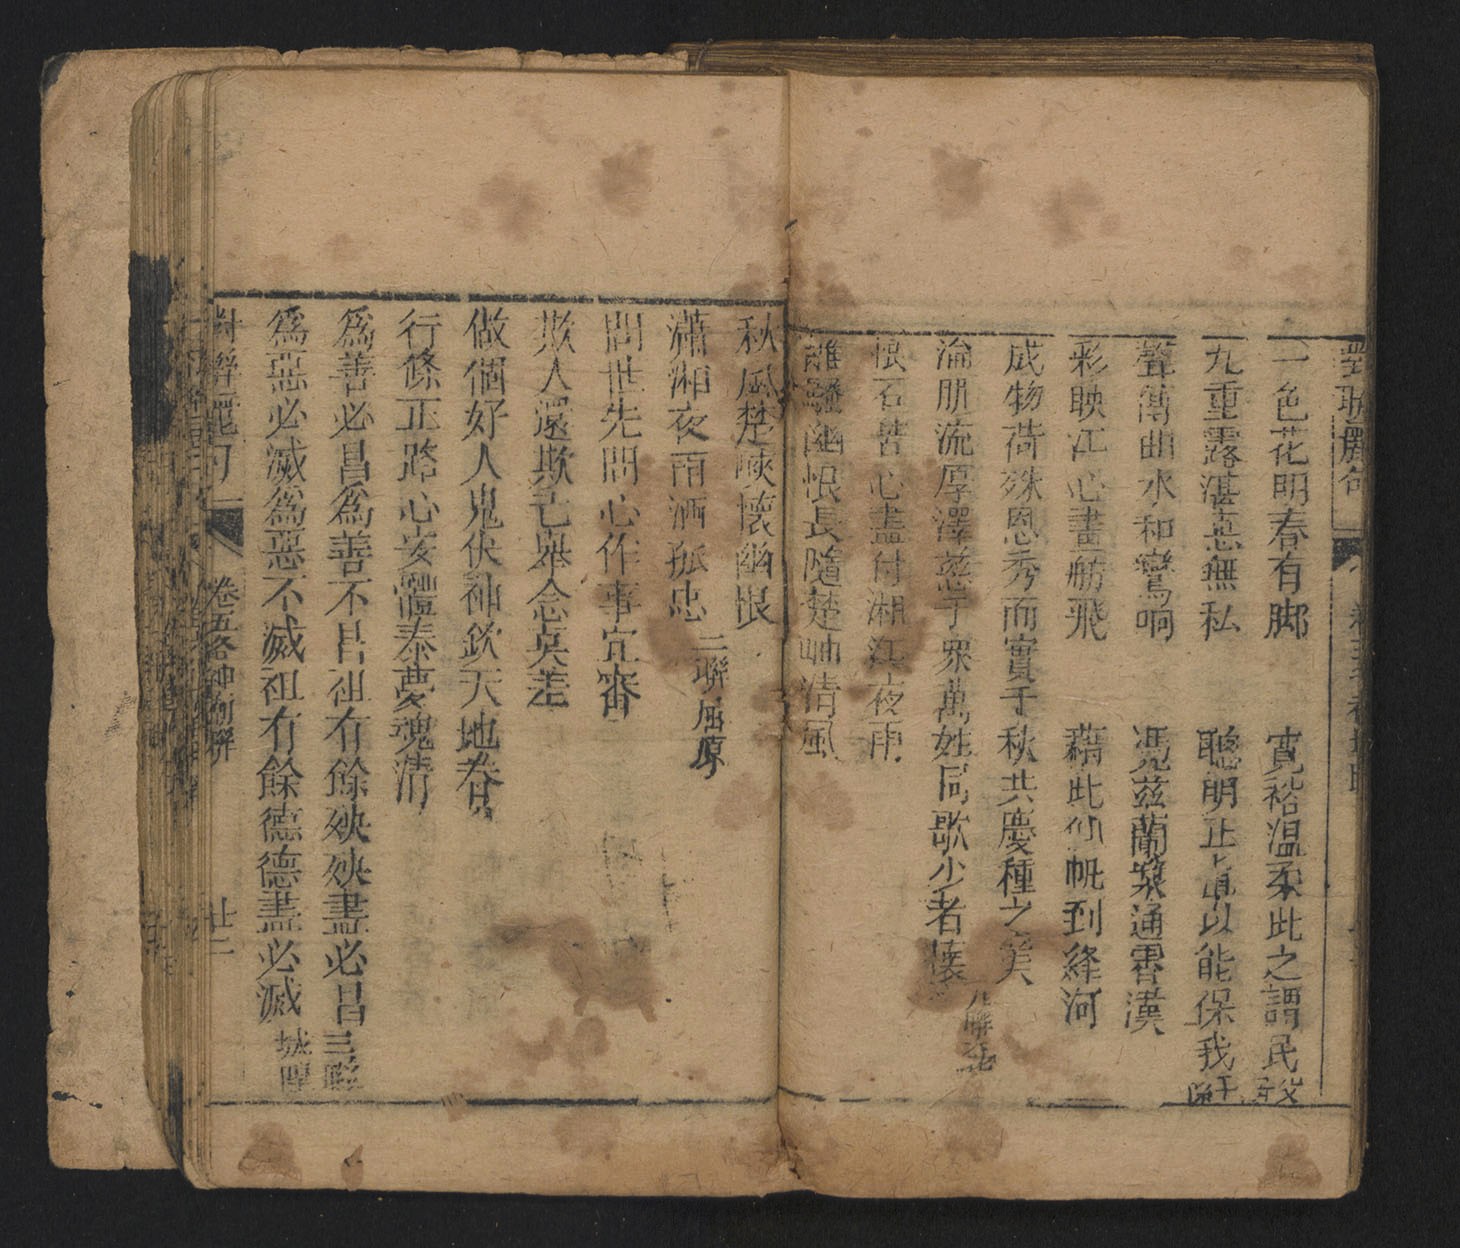 對聯麗句
一色花明春有脚　寛裕温柔此之謂民
九重露湛恵無私　聰明正直以能保我
聲傳曲水和鸞响　馮兹蘭槳通霄漢
彩映江心畫舫飛　藉此仙帆到絳河
成物荷殊恩秀而實于秋共慶種之美
淪肌流厚澤慈于衆萬姓同歌少者懷
恨石昔心盡付湘江夜雨
離騷幽恨長隨楚岫清風
秋風楚峽懷幽恨
瀟湘夜雨洒孤忠 二聯屈原
問世先問心作事宜審
欺人還欺己舉念莫差
做個好人鬼伏神欽天地春
行條正路心安體泰夢魂清
爲善必昌爲善不昌祖有餘殃殃盡必昌 三聯
爲惡必滅爲惡不滅祖有餘德德盡必滅 城隍
對聯麗句 卷五各神廟聯 廿二